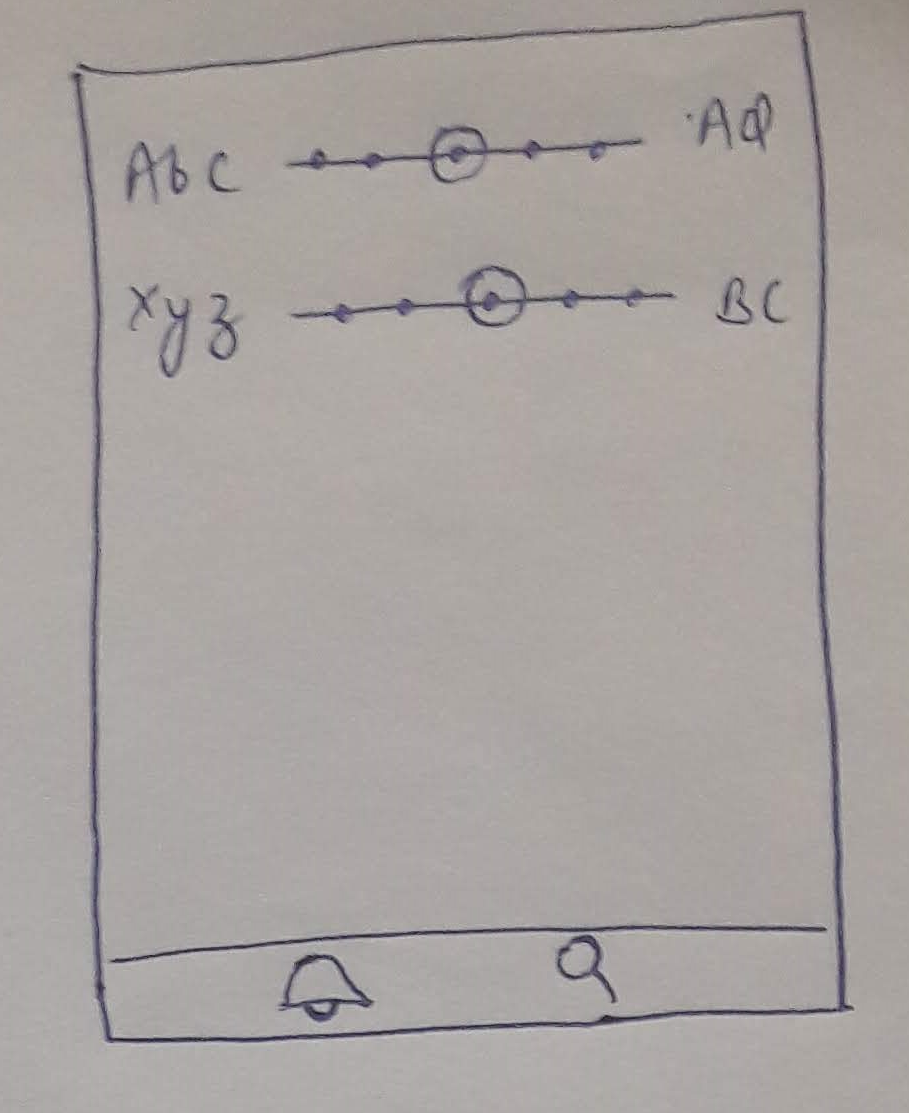 Abc
xyz
BC